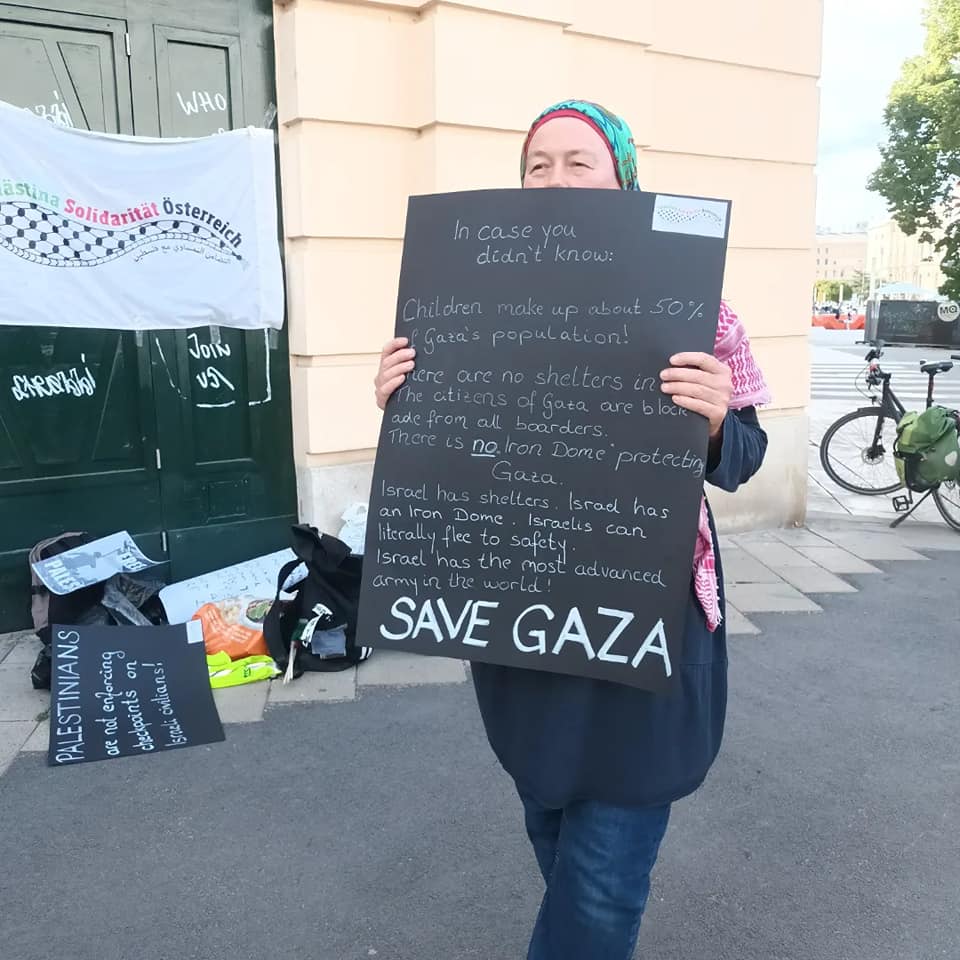 WHO
Solidarität Österreich
التضامن النمساوي مع فلسطين
In case you
didn't know:
Children make up about 50%
Gaza's population!
are no shelters in
The citizens of Gaza are block
ade from all boarders.
There is no Iron Dome protecting
Gaza.
Israel has shelters. Israel has
an Iron Dome. Israelis can
literally flee to safety.
Israel has the most advanced
army in the world!
SAVE GAZA
PALESTINIANS
are not enforcing
checkpoints on
Israeli civilians!
MQ